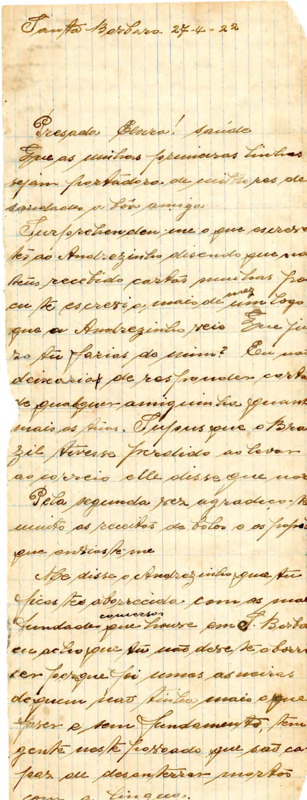 Santa Barbara 27-4-22
Presada Elvira! saude
Que as minhas primeras linhas
sejam portadora de milhores de
saudades a bôa amiga
Surprehendeu-me o que escreves
tes ao Andrezinho disendo que não
tens recebido cartas minhas pois
eu te escrevi a mais de um mez logo
que o Andrezinho veio Que jui
zo tu farias de mim? Eu não
deixaria de responder carta
de qualquer amiguinha quanto
mais as tuas. Supus que o Bra
zil tivesse perdido ao levar
ao correio elle disse que não
Pela segunda vez agradico-te
muito as receitas de bolos e os
que enviaste-me
Me disse o Andrezinho que tu
ficastes aborrecida com as mal
fundadas conversas que houve em S. Barbara
eu acho que tu não deves te aborre
cer porque foi umas asneiras
de quem não tinha mais o que
faser e sem fundamento, tem
gente neste povoado que são ca
paz de desenterrar mortos
com a lingua.